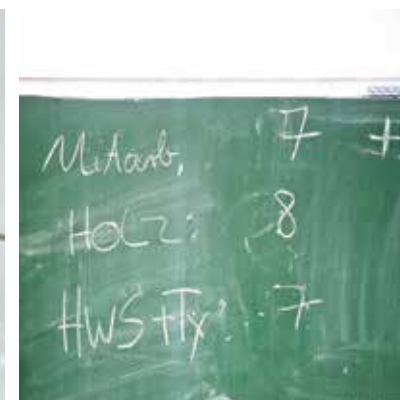 Mitarb. 7 +
HOLZ: 8
HWS+Ty: 7